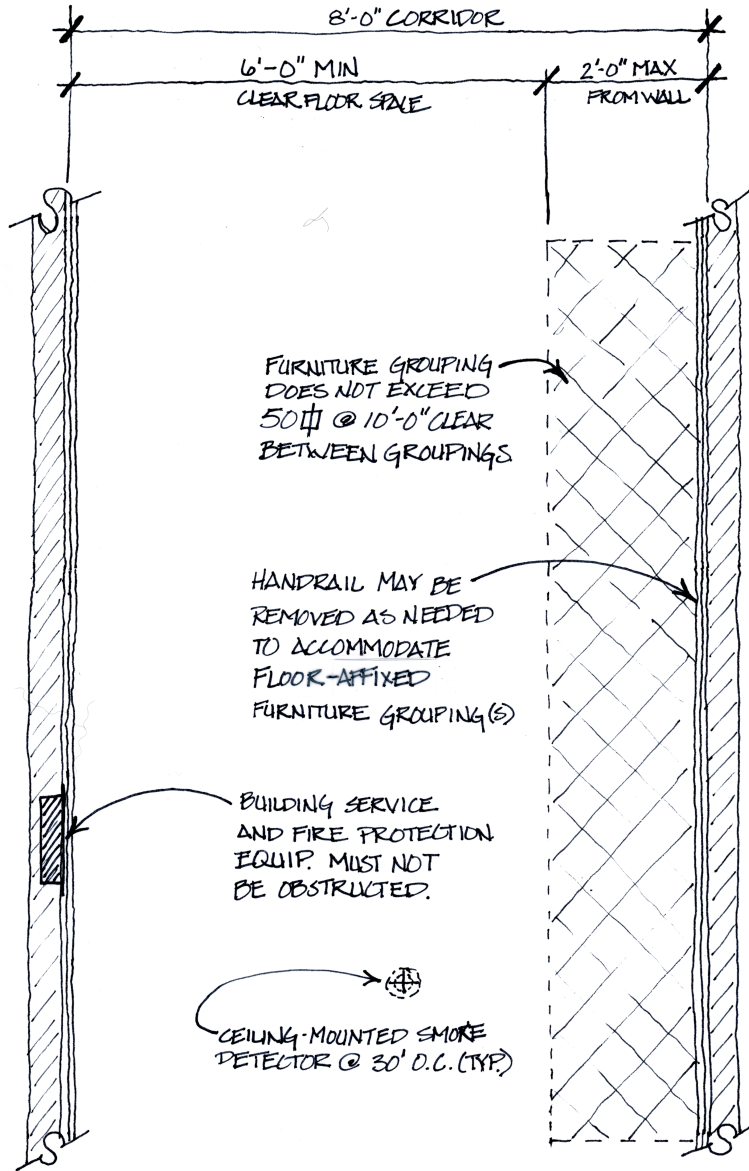 8'-0" CORRIDOR
6'-0" MIN
CLEAR FLOOR SPACE
2'-0" MAX
FROM WALL
FURNITURE GROUPING
DOES NOT EXCEED
50 ⏍ @ 10'-0" CLEAR
BETWEEN GROUPINGS
HANDRAIL MAY BE
REMOVED AS NEEDED
TO ACCOMMODATE
FLOOR-AFFIXED
FURNITURE GROUPING(S)
BUILDING SERVICE
AND FIRE PROTECTION
EQUIP. MUST NOT
BE OBSTRUCTED.
CEILING-MOUNTED SMOKE
DETECTOR @ 30' O.C. (TYP.)